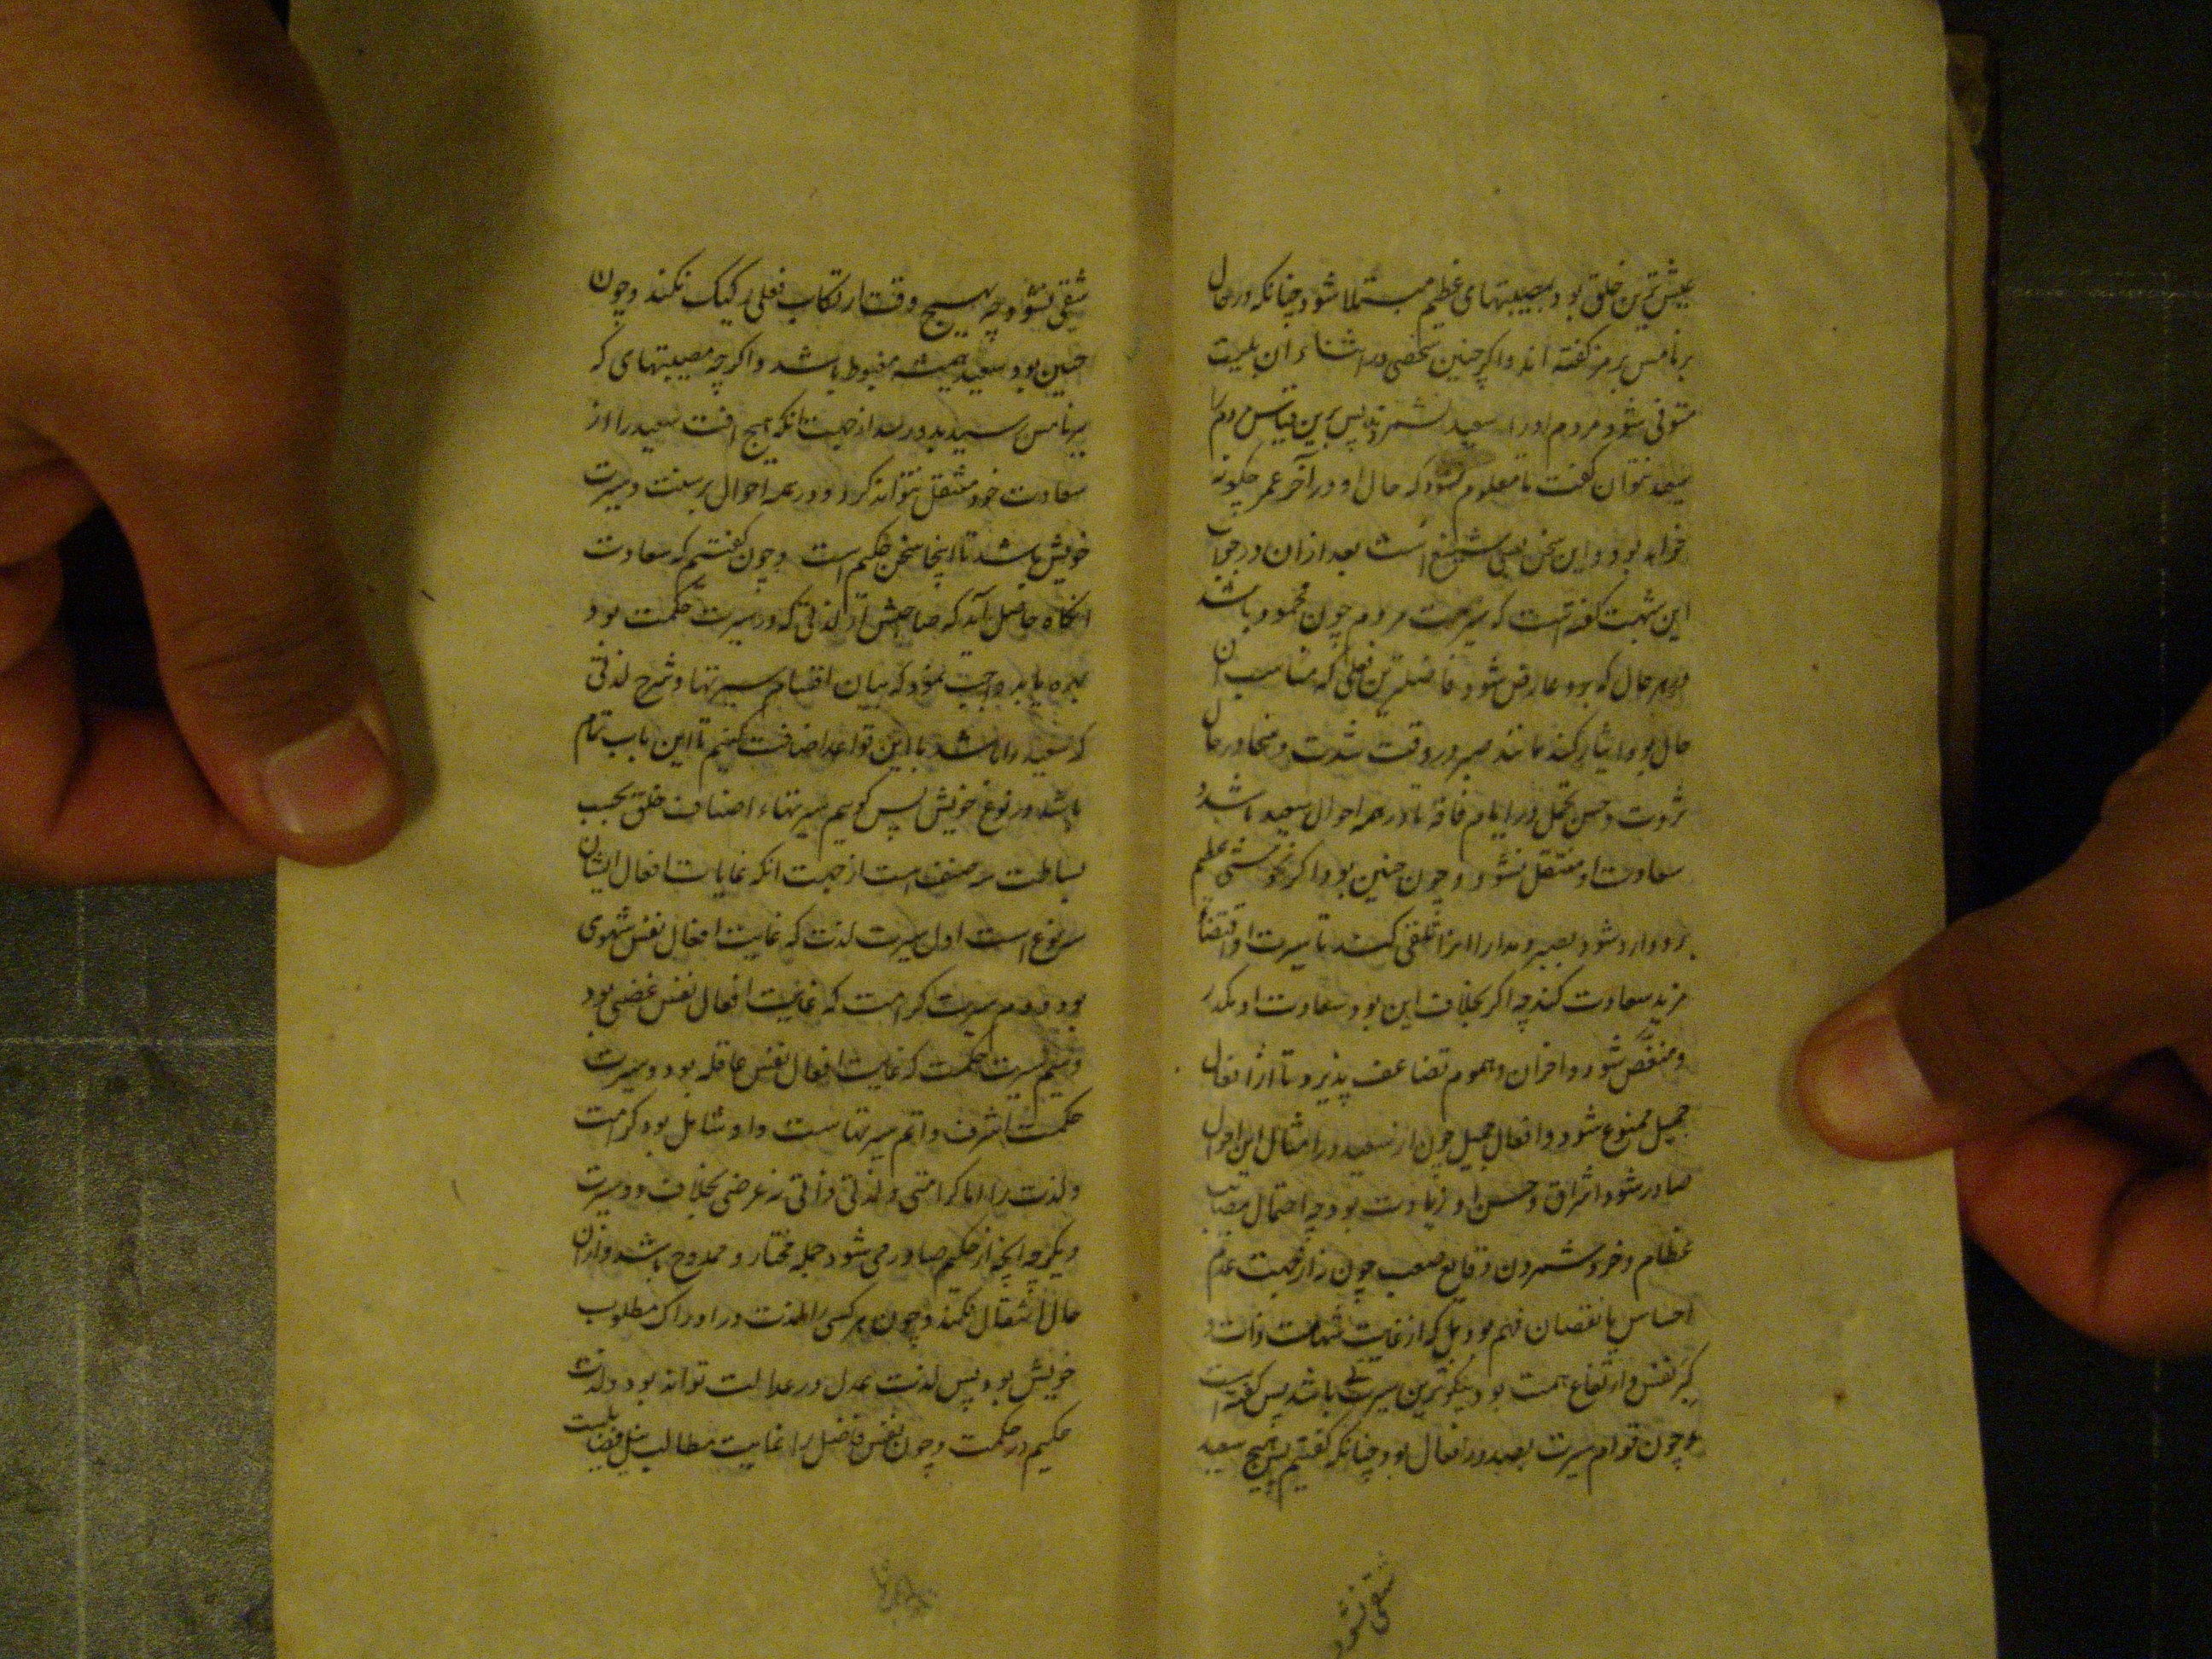 عیش‌ترین خلق بود و بمصیبتهای عظیم مبتلا شود چنانکه در حال
برنامس برمز گفته اند و اگر چنین شخصی در اثناء ان بلیت
متوفی شود مردم او را سعید نشمرند پس برین قیاس مردم را
سعید نتوان گفت تا معلوم نشود که حال او در آخر عمر چگونه
خواهد بود و این سخن بغایت شنیع است بعد از ان در جواب
این شبهت گفته است که سیرت مردم چون محمود باشد
در هر حال که برو عارض شود فاضلترین فعلی که مناسب ان
حال بود ایثار کند مانند صبر در وقت شدت و سخا در حال
ثروت و حسن تحمل در ایام فاقه تا در همه احوال سعید باشد و
سعادت او منتقل نشود و چون چنین بود اگر نحوستی عظیم
برو وارد شود بصبر و مدارا انرا تلقی کند تا سیرت او اقتضاء
مزید سعادت کند چه اگر بخلاف این بود سعادت او مکدر
و منغص شود و احزان و هموم تضاعف پذیرد تا از افعال
جمیل ممنوع شود و افعال جمیل چون از سعید در امثال این احوال
صادر شود اشراق و حسن او زیادت بود چه احتمال مصائب
عظام و خرد شمردن وقایع صعب چون نه از جهت عدم
احساس یا نقصان فهم بود بل که از غایت شهامت ذات و
کبر نفس و ارتفاع همت بود نیکوترین سیرتی باشد پس گفته است
و چون قوام سیرت بصدور افعال بود چنانکه گفتیم پس هیچ سعید
شقی نشود
شقی نشود چه هیچ وقت ارتکاب فعلی رکیک نکند و چون
چنین بود سعید همیشه مغبوط باشد و اگر چه مصیبتهای که
ببرنامس رسید بدو رسد از جهت آنکه هیچ افت سعید را از
سعادت خود منتقل نتواند کرد و در همه احوال بر سنت و سیرت
خویش باشد تا اینجا سخن حکیم است و چون گفتیم که سعادت
انگاه حاصل آید که صاحبش از لذتی که در سیرت حکمت بود
بهره یابد واجب نمود که بیان اقسام سیرتها و شرح لذتی
که سعید را باشد با این قواعد اضافت کنیم تا این باب تمام
باشد در نوع خویش پس گوییم سیرتهاء اصناف خلق بحسب
بساطت سه صنف است از جهت انکه غایات افعال ایشان
سه نوع است اول سیرت لذت که غایت افعال نفس شهوی
بود و دوم سیرت کرامت که غایت افعال نفس غضبی بود
و سیم سیرت حکمت که غایت افعال نفس عاقله بود و سیرت
حکمت اشرف و اتم سیرتهاست و او شامل بود کرامت
و لذت را اما کرامتی و لذتی ذاتی نه عرضی بخلاف دو سیرت
دیگر چه آنچه از حکیم صادر می شود جمله مختار و ممدوح باشد و از ان
حال انتقال نکند و چون هر کسی را لذت در ادراک مطلوب
خویش بود پس لذت عدل در عدالت تواند بود و لذت
حکیم در حکمت و چون نفس فاضل را غایت مطالب نیل فضایل است